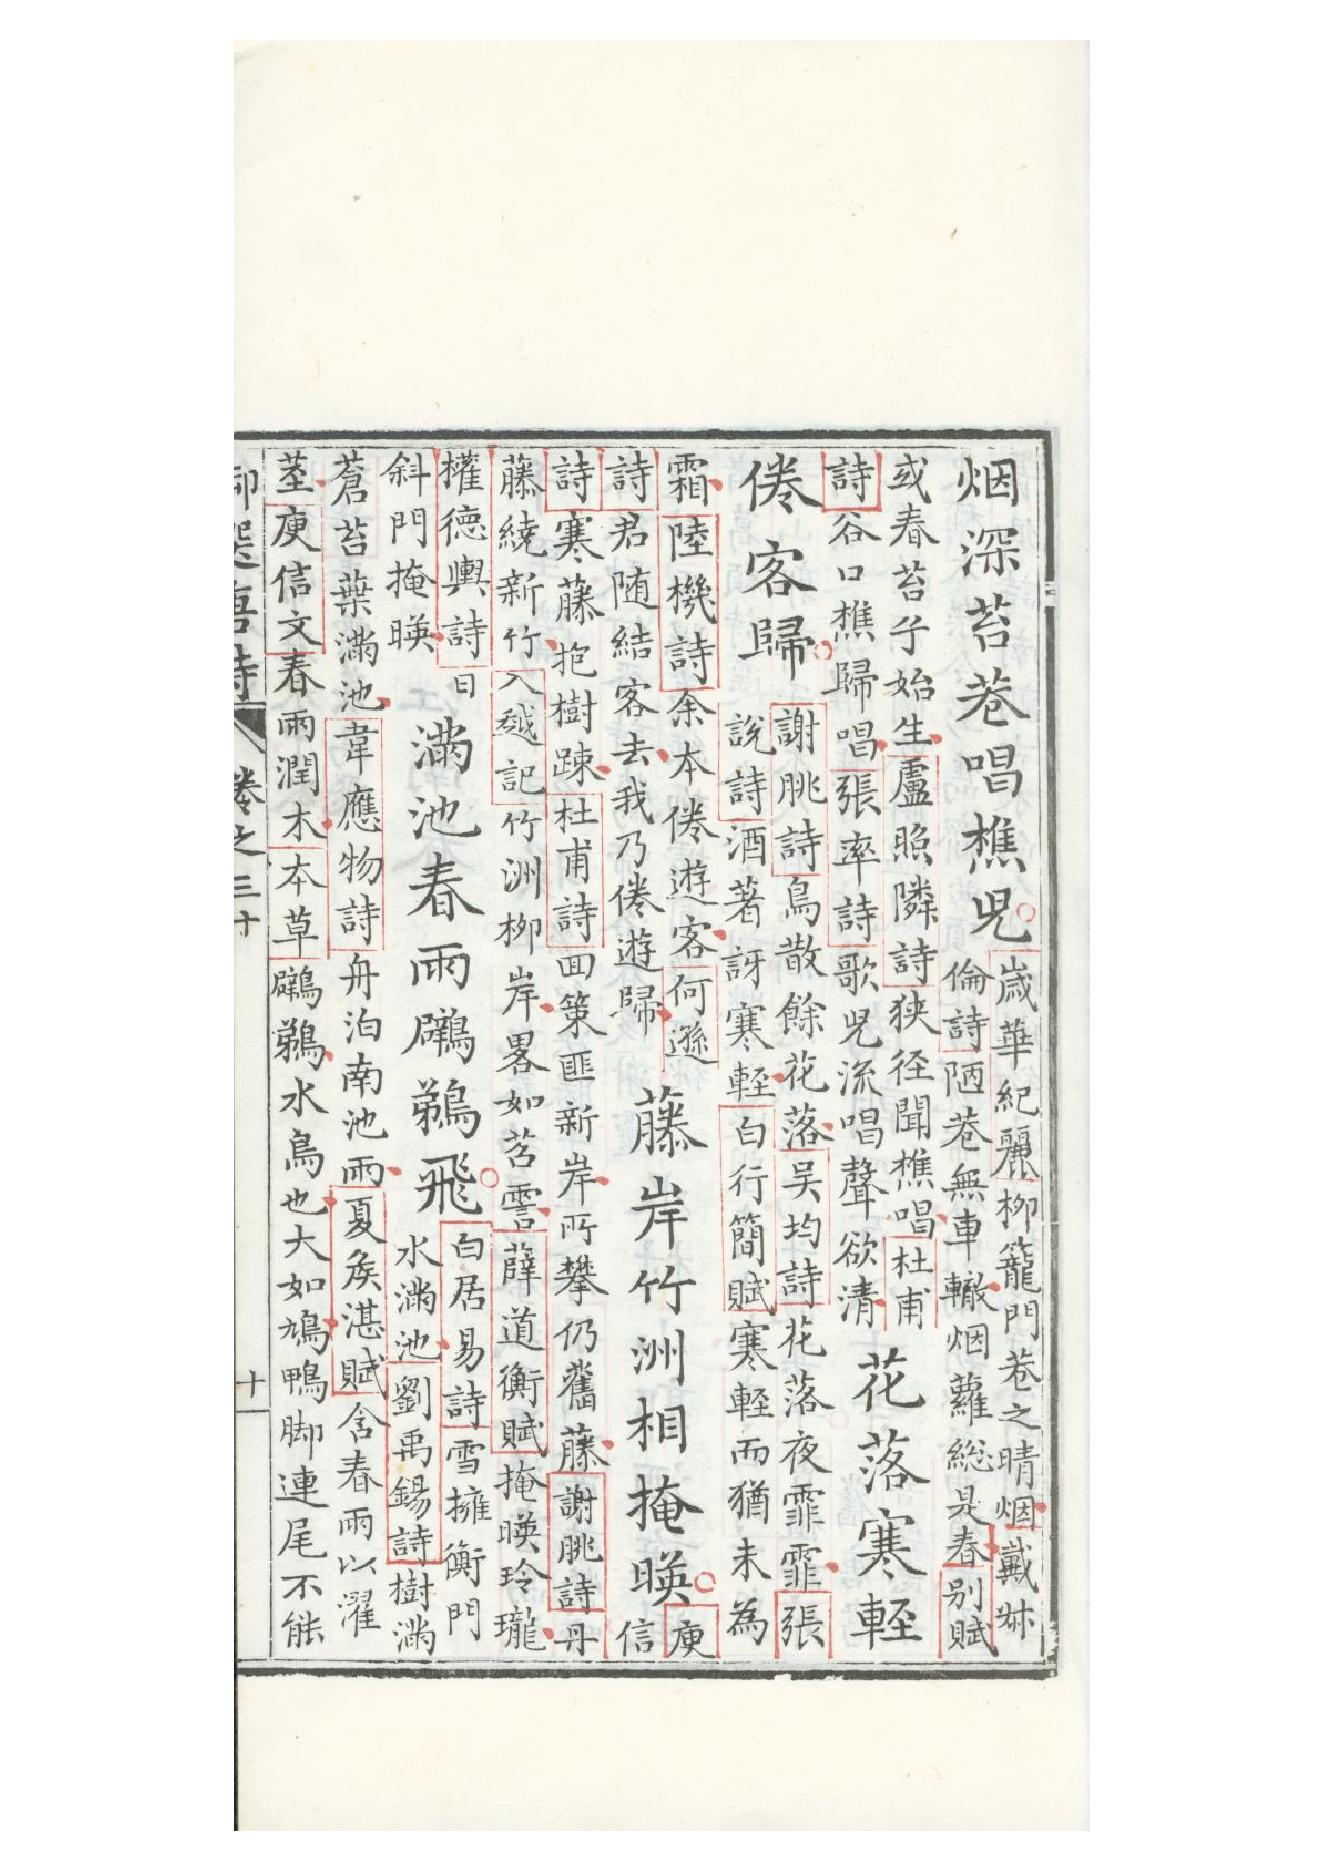 烟深苔巷唱樵兒
歲華紀麗柳籠門巷之晴烟戴叔
倫詩陋巷無車轍烟蘿總是春别賦
或春苔兮始生盧照隣詩狹徑聞樵唱杜甫
詩谷口樵歸唱張率詩歌兒流唱聲欲清
花落寒輕
倦客歸
謝朓詩鳥散餘花落吳均詩花落夜霏霏張
說詩酒著訝寒輕白行簡賦寒輕而猶未為
霜陸機詩余本倦遊客何遜
詩君随結客去我乃倦遊歸
藤岸竹洲相掩暎
庾
信
詩寒藤抱樹疎杜甫詩回策匪新岸所攀仍舊藤謝朓詩丹
藤繞新竹入越記竹洲柳岸畧如苕霅薛道衡賦掩暎玲瓏
權德輿詩日
斜門掩暎
滿池春雨鸊鵜飛
白居易詩雪擁衡門
水滿池劉禹錫詩樹滿
蒼苔葉滿池韋應物詩舟泊南池雨夏矦湛賦含春雨以濯
莖庾信文春雨潤木本草鸊鵜水鳥也大如鳩鴨脚連尾不能
御選唐詩 卷之三十 十